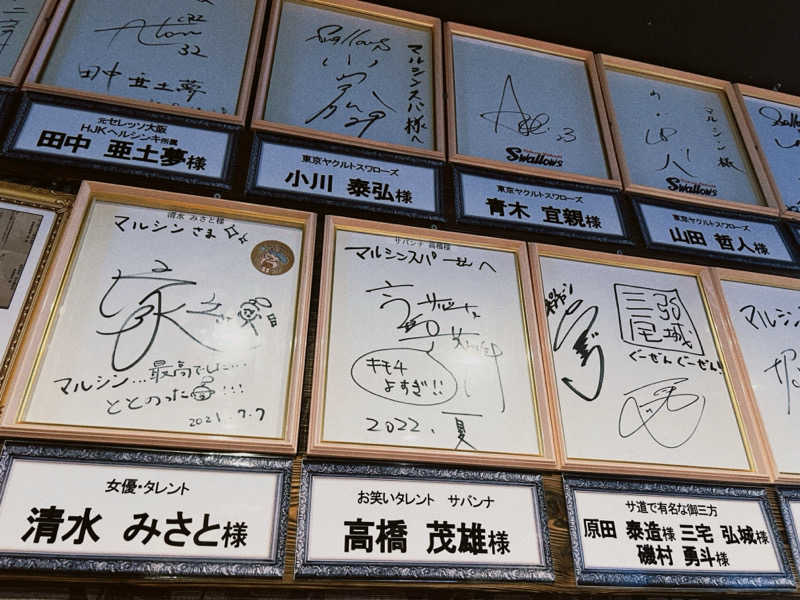 32
田中 亜土夢
元セレッソ大阪
HJKヘルシンキ所属
田中 亜土夢様
Swallows
マルシンスパ様へ
29
東京ヤクルトスワローズ
小川 泰弘様
Swallows
東京ヤクルトスワローズ
青木 宜親様
マルシン様
Swallows
東京ヤクルトスワローズ
山田 哲人様
清水 みさと様
マルシンさま
マルシン...最高でした...
ととのった!!!
2021.7.7
女優・タレント
清水 みさと様
サバンナ 高橋様
マルシンスパ
キモチ
よすぎ!!
2022.夏
お笑いタレント サバンナ
高橋 茂雄様
三宅弘城
ぐーぜんぐーぜん!
サ道で有名な御三方
原田 泰造様 三宅 弘城様
磯村 勇斗様
マルシン